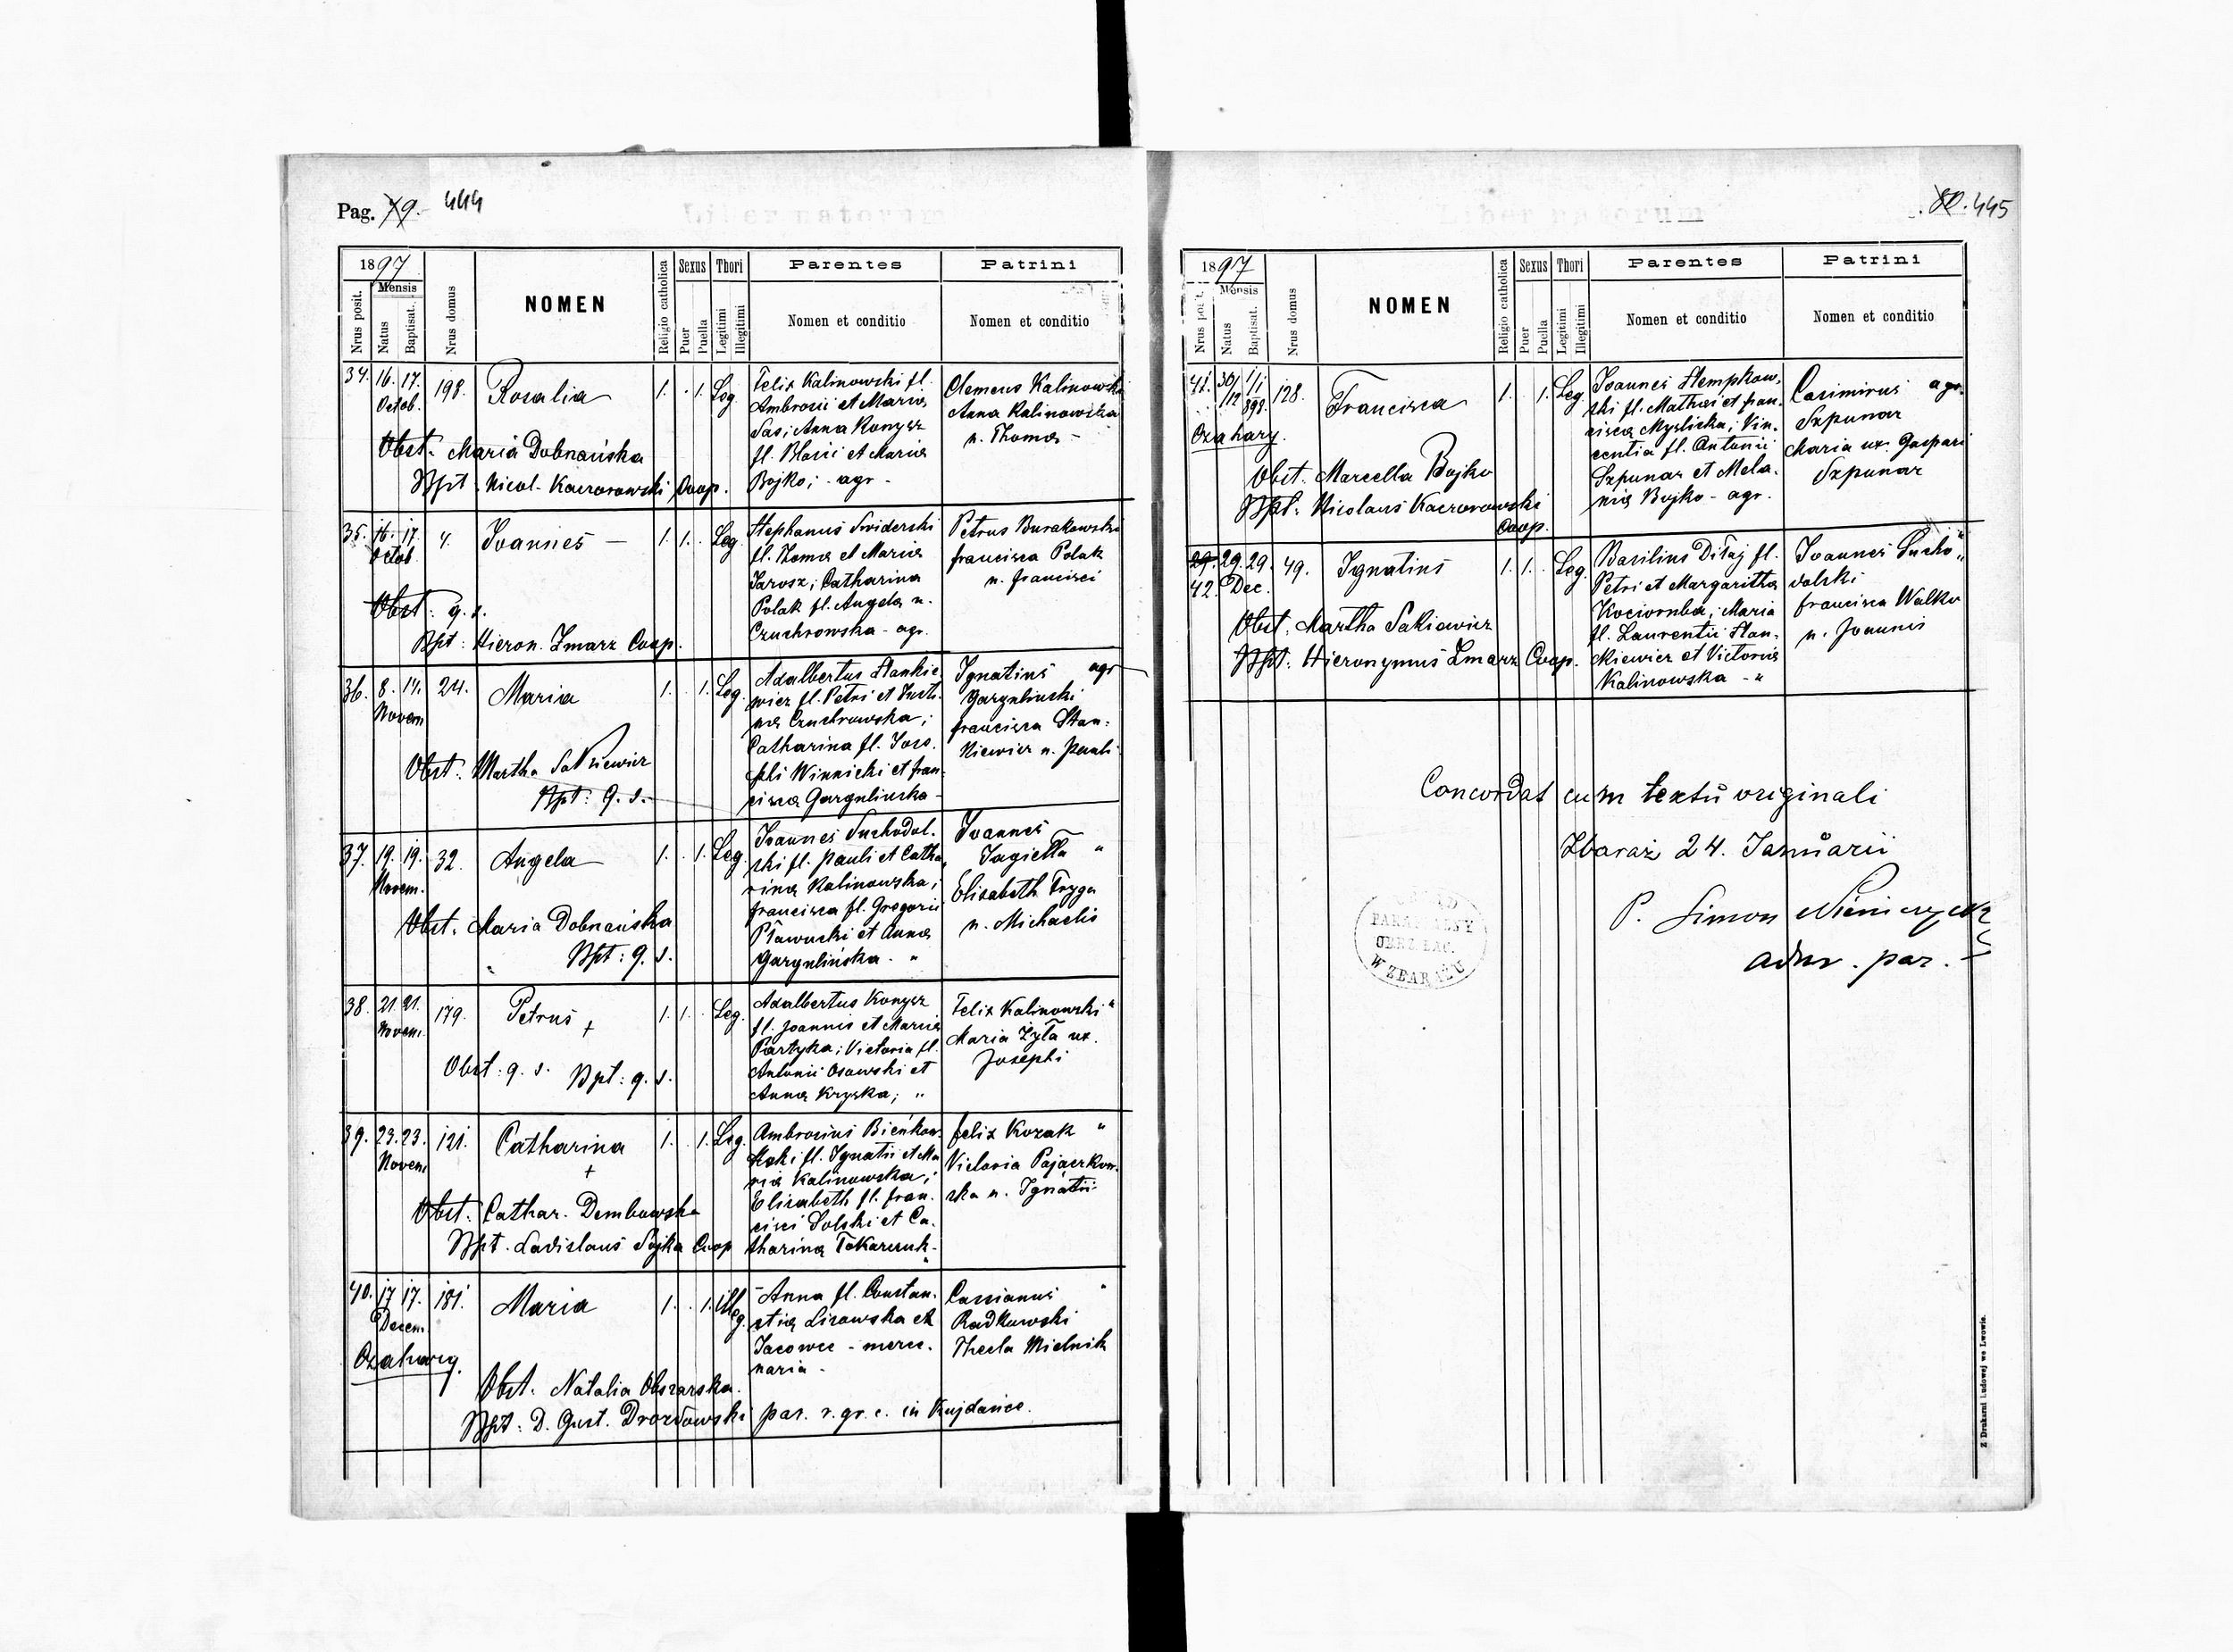 Pag. 79. 444
Liber natorum
1897
Mensis
Nrus posit.
Natus
Baptisat.
Nrus domus
NOMEN
Religio catholica
Sexus
Puer
Puella
Thori
Legitimi
Illegitimi
Parentes
Nomen et conditio
Patrini
Nomen et conditio
34. 16. 17. 198. Rosalia 1. . 1. Leg.
Octob.
Obst. Maria Dobnańska
Bpt. Nicol. Kaczorowski Coop.
Felix Kalinowski fl.
Ambrosii et Maria
Sas; Anna Konysz
fl. Blasii et Maria
Bojko; - agr -
Clemens Kalinowski
Anna Kalinowska
n. Thoma -
35. 16. 17. 4. Joannes — 1. 1. . Leg.
Octob.
Obst: q. s.
Bpt: Hieron. Zmarz Coop.
Stephanus Swiderski
fl. Thoma et Maria
Jarosz; Catharina
Polak fl. Angela n.
Czuchrowska - agr.
Petrus Burakowski
francisca Polak
n. francisci
36. 8. 14. 24. Maria 1. . 1. Leg.
Novem
Obst: Martha Sakiewicz
Bpt: q. s.
Adalbertus Stankie
wicz fl. Petri et Justi
na Czuchrowska;
Catharina fl. Jose
phi Winnicki et fran
cisca Gargulinska -
Ignatius agr
Gargulinski
francisca Stan-
kiewicz n. Pauli
37. 19. 19. 32. Angela 1. . 1. Leg.
Novem.
Obst. Maria Dobnańska
" Bpt: q. s.
Joannes Suchodol-
ski fl. Pauli et Catha
rina Kalinowska;
francisca fl. Gregorii
Pławucki et Anna
Gargulińska. "
Joannes
Jagiełła "
Elisabeth Fryga
n. Michaelis
38. 21. 21. 179. Petrus + 1. 1. . Leg.
Novem.
Obst: q. s. Bpt: q. s.
Adalbertus Konysz
fl. Joannis et Maria
Partyka; Victoria fl.
Antonii Osowski et
Anna Kryska; "
Felix Kalinowski "
Maria Żyła ux.
Josephi
39. 23. 23. 121. Catharina + 1. . 1. Leg.
Novem
Obst. Cathar. Dembowska
Bpt. Ladislaus Sojka Coop
Ambrosius Bieńkow
ski fl. Ignatii et Ma
ria Kalinowska;
Elisabeth fl. fran-
cisci Solski et Ca-
tharina Tokarczuk -
felix Kozak "
Victoria Pajączkow-
ska n. Ignatii
40. 17 17. 181. Maria 1. . 1. illeg.
Decem.
Ozahary.
Obst. Natalia Obszarska.
Bpt: D. Gust. Drozdowski par. r. gr. c. in Kujdańce.
Anna fl. Constan-
tia Lisowska ex
Jacowce - merce-
naria -
Cassianus "
Radkowski
Thecla Mielnik
80. 445
Liber natorum
1897
Mensis
Nrus posit.
Natus
Baptisat.
Nrus domus
NOMEN
Religio catholica
Sexus
Puer
Puella
Thori
Legitimi
Illegitimi
Parentes
Nomen et conditio
Patrini
Nomen et conditio
41. 30/12 1/1 898. 128. Francisca 1. 1. Leg.
Ozahary.
Obst. Marcella Bojko
Bpt: Nicolaus Kaczorowski
Coop.
Joannes Stempkow-
ski fl. Mathaei et fran-
cisca Myslicka; Vin-
centia fl. Antonii
Szpunar et Mela-
nia Bojko - agr.
Casimirus agr.
Szpunar
Maria ux. Gaspari
Szpunar
29. 29. 29. 49. Ignatius 1. 1. . Leg.
42. Dec.
Obst. Martha Sakiewicz
Bpt: Hieronymus Zmarz Coop.
Basilius Diłaj fl.
Petri et Margaritha
Kociornba; Maria
fl. Laurentii Stan-
kiewicz et Victoria
Kalinowska - "
Joannes Sucho "
dolski "
francisca Walko
n. Joannis
Concordat cum textu originali
Zbaraż 24. Januarii
P. Simon Niemczycki
adm. par.
PARAFIALNY
OBRZ. ŁAC.
W ZBARAŻU
Z Drukarni Ludowej we Lwowie.